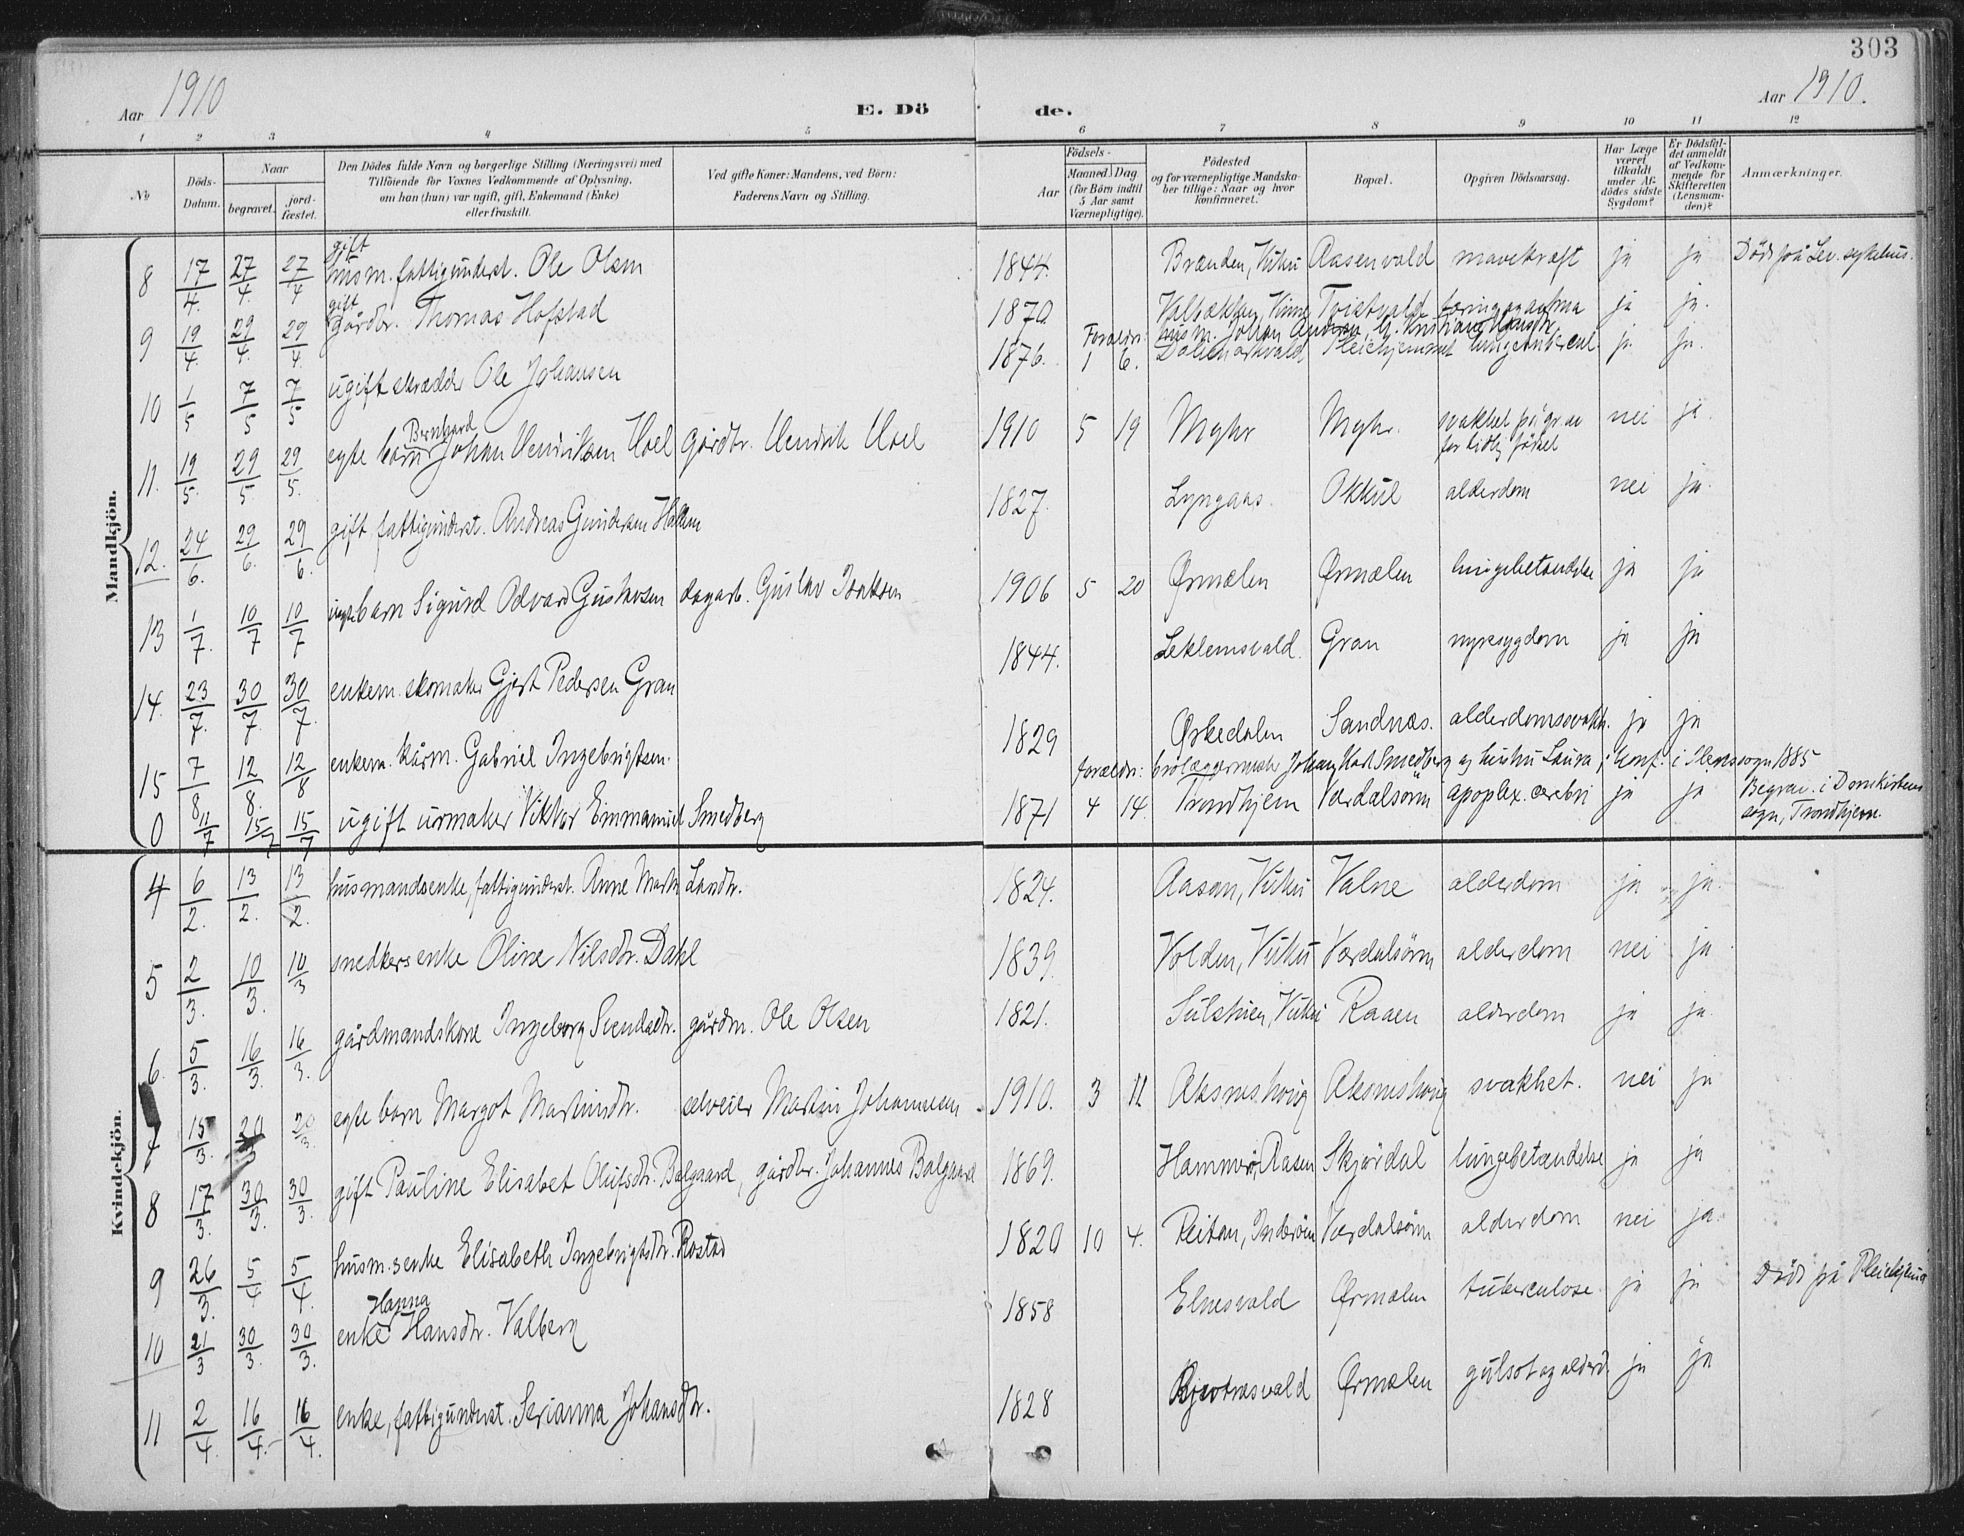 303
Aar 1910
E. Dö
de.
Aar 1910.
1 2 3 4 5 6 7 8 9 10 11 12
No
Döds-Datum.
Naar
begravet. jord-fæstet.
Den Dödes fulde Navn og borgerlige Stilling (Næringsvei) med
Tilföiende for Voxnes Vedkommende af Oplysning,
om han (hun) var ugift, gift, Enkemand (Enke)
eller fraskilt.
Ved gifte Koner: Mandens, ved Börn:
Faderens Navn og Stilling.
Födsels-
Aar
Maaned Dag
(for Börn indtil
5 Aar samt
Værnepligtige).
Födested
og for værnepligtige Mandska-
ber tillige: Naar og hvor
konfirmeret.
Bopæl.
Opgiven Dödsaarsag.
Har Læge
været
tilkaldt
under Af-
dödes sidste
Sygdom?
Er Dödsfal-
det anmeldt
af Vedkom-
mende for
Skifteretten
(Lensman-
den)?
Anmærkninger.
Mandkjön.
8 17/4. 27/4. 27/4 gift husm. fattigunderst. Ole Olsen 1844. Branden, Vuku Aasenvald mavekræft ja ja Död på Lev. sykehus.
9 19/4. 29/4. 29/4. gift gårdbr. Thomas Hofstad 1870. Valbækken, Vinne ja ja.
Forældr: husm. Johan
10 1/5 7/5 7/5 ugift skrædder Ole Johansen 1876. 1 6. Pleiehjemmet lungetubercul. ja ja.
11. 19/5. 29/5 29/5. egte barn Bernhard Johan Henriksen Hoel gårdbr. Hendrik Hoel 1910 5 19 Myhr Myhr. svakhet på gr. av for tidlig födsel nei ja.
12. 24/6. 29/6. 29/6. gift fattigunderst. Andreas Gundersen Hallem 1827. Lyngaas. Okkul alderdom nei ja.
13 1/7. 10/7 10/7 barn Sigurd Edvard Gustavsen dagarb. Gustav Isaksen 1906 5 20 Ørmælen Ørmælen lungebetændelse ja ja
14. 23/7. 30/7. 30/7. enkem. skomaker Gjert Pedersen Gran 1844. Leklemsvald. Gran nyresygdom ja ja
15 7/8 12/8. 12/8 enkem. kårm. Gabriel Ingebrigtsen. 1829 Ørkedalen Sandnæs. alderdomssvakh. ja ja
forældr: Johan Karl Smedberg og hustru Laura; konf. i Ilens sogn 1885
0 11/7 15/7 15/7 ugift urmaker Viktor Emmanuel Smedberg 1871 4 14. Trondhjem Værdalsøren apoplex. cerebri ja ja Begrav. i Domkirkens sogn, Trondhjem.
Kvindekjön.
4 6/2. 13/2. 13/2. husmandsenke, fattigunderst. Anne Marta Larsdtr. 1824. Aasan, Vuku Valne alderdom ja ja.
5 2/3. 10/3. 10/3 snedkersenke Oline Nilsdtr. Dahl 1839. Volden, Vuku Værdalsøren alderdom nei ja
6. 5/3. 16/3. 16/3. gårdmandskone Ingeborg Svendsdtr. gårdm. Ole Olsen 1821. Sulstuen, Vuku Raaen alderdom ja ja
7 15/3. 20/3 20/3. egte barn Margot Martinsdtr. selveier Martin Johannesen 1910. 3 11 Aksneshoug Aksneshoug svakhet. nei ja
8 17/3. 30/3. 30/3. gift Pauline Elisabet Olufsdtr. Balgaard, gårdbr. Johannes Balgaard 1869. Hammer, Aasen Skjørdal lungebetændelse ja ja
9 26/3. 5/4 5/4. husm.senke Elisabeth Ingebrigtsdtr. Rostad 1820 10 4. Reitan, Inderøen Værdalsøren alderdom nei ja.
10 21/3 30/3. 30/3. enke Hanna Hansdtr. Valberg 1858 Elnesvald Ørmælen tuberculose. ja ja Död på Pleiehjem
11 2/4 16/4. 16/4. enke, fattigunderst. Serianna Johansdtr. 1828 Ørmælen gulsot og alderd. ja ja